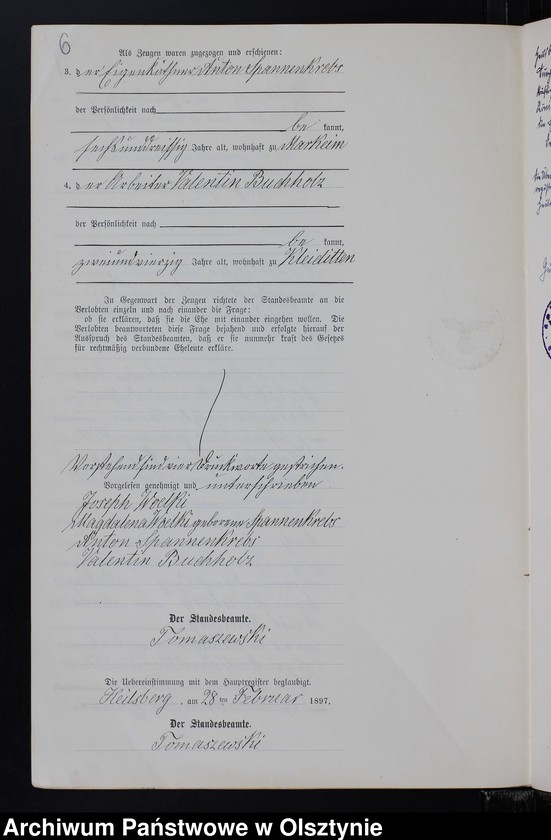 6
Als Zeugen waren zugezogen und erschienen:
3. der Eigenkäthner Anton Spannenkrebs
der Persönlichkeit nach
be kannt,
sechsunddreißig Jahre alt, wohnhaft zu Markeim
4. der Arbeiter Valentin Buchholz
der Persönlichkeit nach
be kannt,
zweiundvierzig Jahre alt, wohnhaft zu Kleiditten
In Gegenwart der Zeugen richtete der Standesbeamte an die
Verlobten einzeln und nach einander die Frage:
ob sie erklären, daß sie die Ehe mit einander eingehen wollen. Die
Verlobten beantworteten diese Frage bejahend und erfolgte hierauf der
Ausspruch des Standesbeamten, daß er sie nunmehr kraft des Gesetzes
für rechtmäßig verbundene Eheleute erkläre.
Vorstehend sind vier Druckworte gestrichen.
Vorgelesen genehmigt und unterschrieben
Joseph Woelki
Magdalena Woelki geborene Spannenkrebs
Anton Spannenkrebs
Valentin Buchholz
Der Standesbeamte.
Tomaszewski
Die Uebereinstimmung mit dem Hauptregister beglaubigt.
Heilsberg, am 28 ten Februar 1897.
Der Standesbeamte.
Tomaszewski
Archiwum Państwowe w Olsztynie